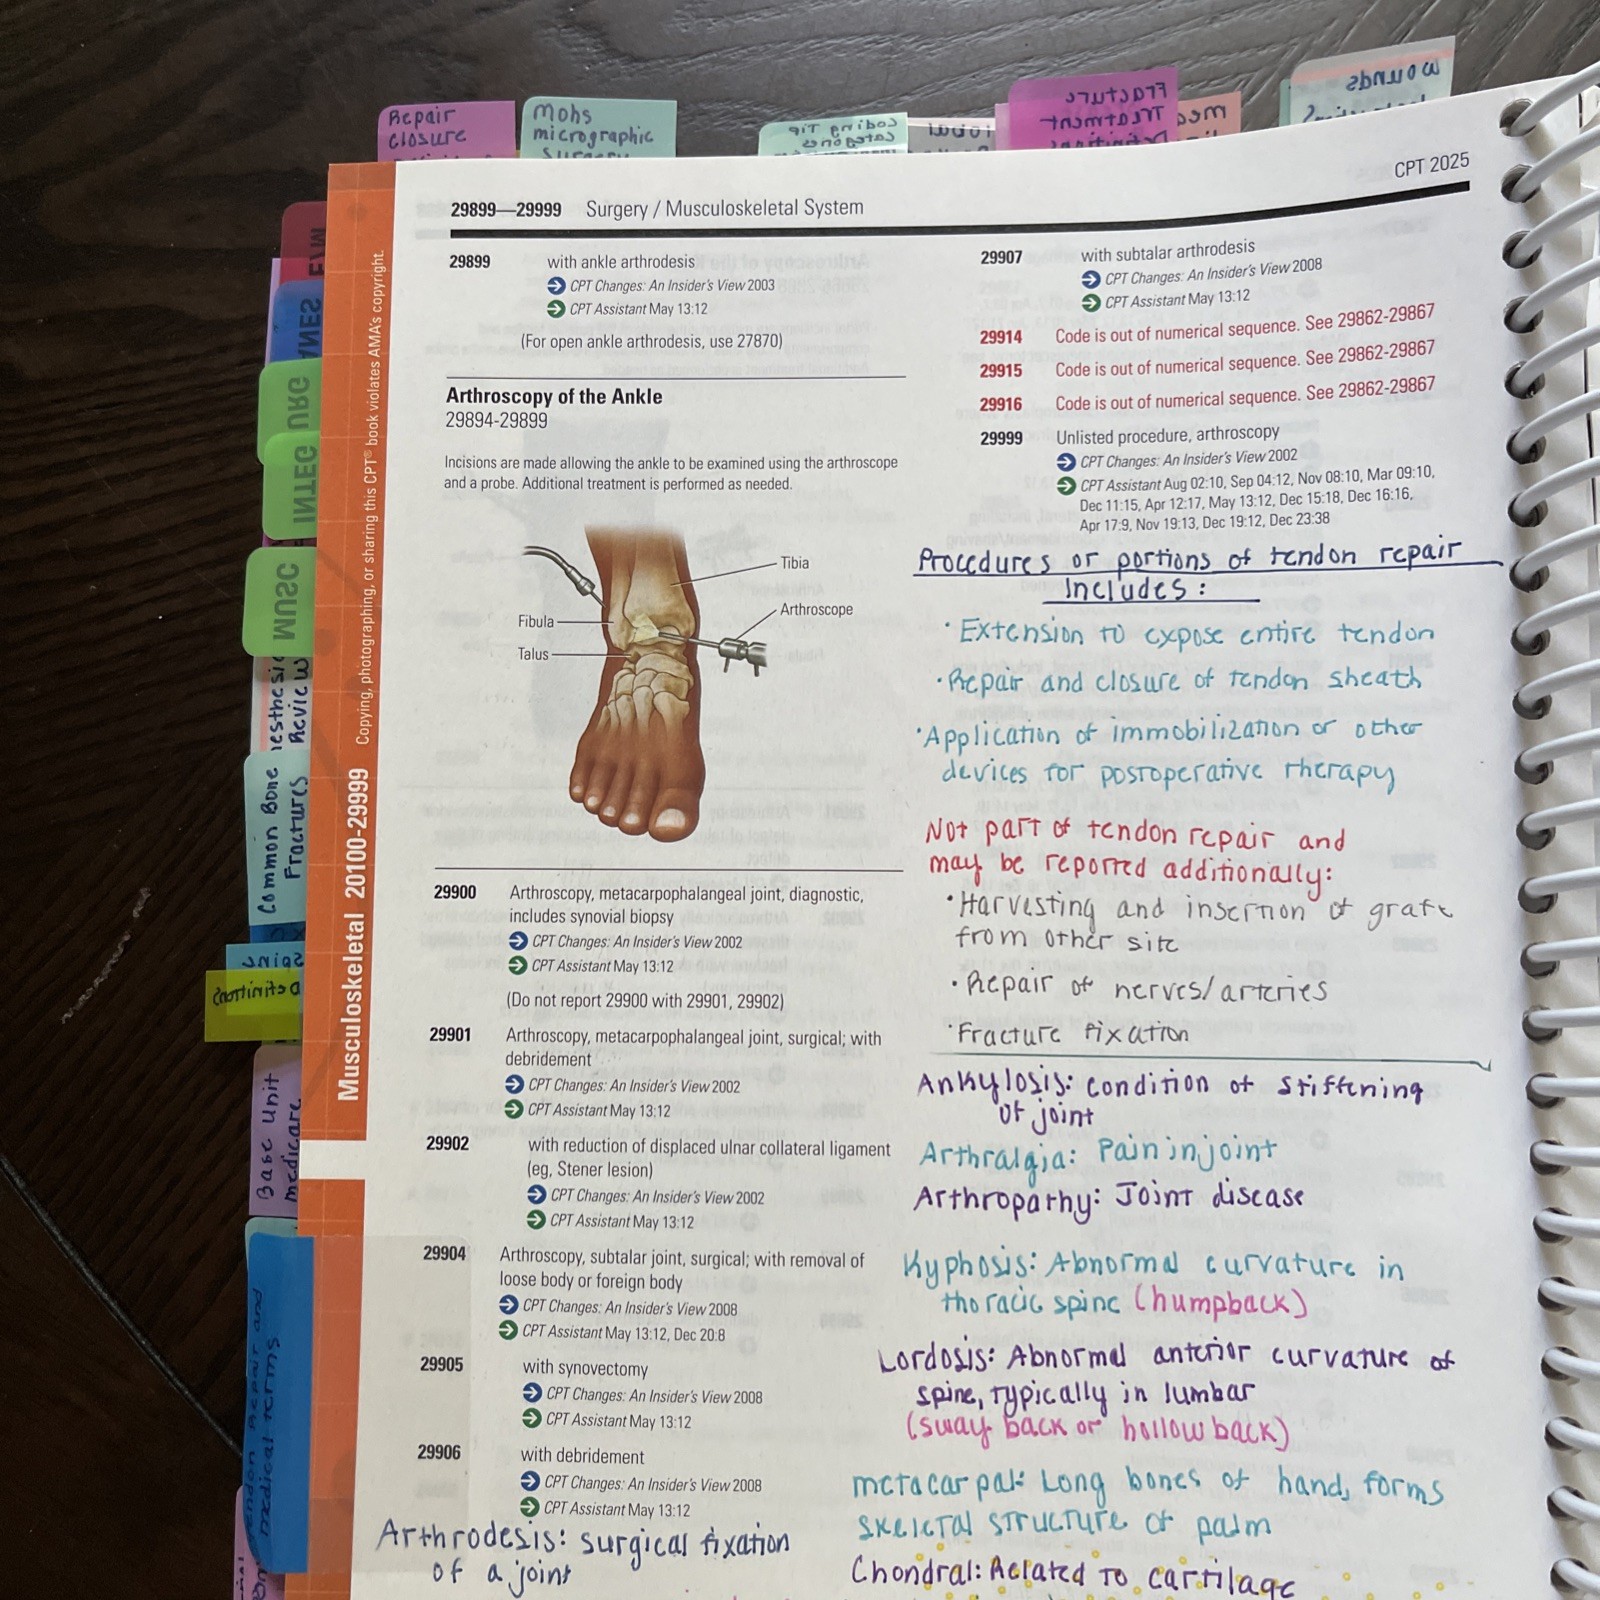 Repair
Closure
Mohs
micrographic
surgery
coding Tip
categories
Fracture
Treatment
Definitions
wounds
CPT 2025
29899—29999 Surgery / Musculoskeletal System
E/M
ANES
URG
INTEG
MUSC
Review
Common Bone
Fractures
Definitions
Base Unit
medicare
Tendon Repair and
medical terms
Copying, photographing, or sharing this CPT® book violates AMA's copyright.
Musculoskeletal 20100-29999
29899 with ankle arthrodesis
CPT Changes: An Insider's View 2003
CPT Assistant May 13:12
(For open ankle arthrodesis, use 27870)
Arthroscopy of the Ankle
29894-29899
Incisions are made allowing the ankle to be examined using the arthroscope
and a probe. Additional treatment is performed as needed.
Tibia
Arthroscope
Fibula
Talus
29900 Arthroscopy, metacarpophalangeal joint, diagnostic,
includes synovial biopsy
CPT Changes: An Insider's View 2002
CPT Assistant May 13:12
(Do not report 29900 with 29901, 29902)
29901 Arthroscopy, metacarpophalangeal joint, surgical; with
debridement
CPT Changes: An Insider's View 2002
CPT Assistant May 13:12
29902 with reduction of displaced ulnar collateral ligament
(eg, Stener lesion)
CPT Changes: An Insider's View 2002
CPT Assistant May 13:12
29904 Arthroscopy, subtalar joint, surgical; with removal of
loose body or foreign body
CPT Changes: An Insider's View 2008
CPT Assistant May 13:12, Dec 20:8
29905 with synovectomy
CPT Changes: An Insider's View 2008
CPT Assistant May 13:12
29906 with debridement
CPT Changes: An Insider's View 2008
CPT Assistant May 13:12
Arthrodesis: surgical fixation
of a joint
29907 with subtalar arthrodesis
CPT Changes: An Insider's View 2008
CPT Assistant May 13:12
29914 Code is out of numerical sequence. See 29862-29867
29915 Code is out of numerical sequence. See 29862-29867
29916 Code is out of numerical sequence. See 29862-29867
29999 Unlisted procedure, arthroscopy
CPT Changes: An Insider's View 2002
CPT Assistant Aug 02:10, Sep 04:12, Nov 08:10, Mar 09:10,
Dec 11:15, Apr 12:17, May 13:12, Dec 15:18, Dec 16:16,
Apr 17:9, Nov 19:13, Dec 19:12, Dec 23:38
Procedures or portions of tendon repair
includes:
· Extension to expose entire tendon
· Repair and closure of tendon sheath
· Application of immobilization or other
devices for postoperative therapy
Not part of tendon repair and
may be reported additionally:
· Harvesting and insertion of graft
from other site
· Repair of nerves/arteries
· Fracture fixation
Ankylosis: condition of stiffening
of joint
Arthralgia: Pain in joint
Arthropathy: Joint disease
Kyphosis: Abnormal curvature in
thoracic spine (humpback)
Lordosis: Abnormal anterior curvature of
spine, typically in lumbar
(sway back or hollow back)
metacarpal: Long bones of hand, forms
skeletal structure of palm
Chondral: Related to cartilage